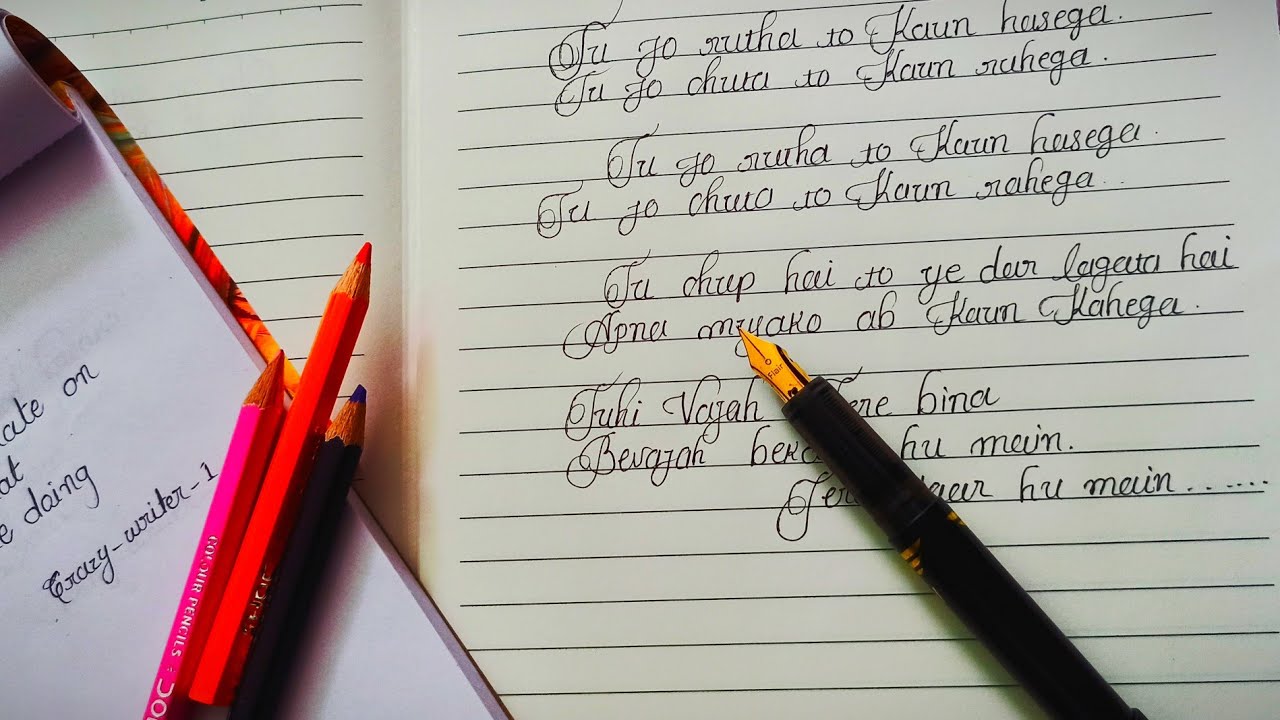 Tu jo rutha to Kaun hasega.
Tu jo chuta to Kaun rahega.
Tu jo rutha to Kaun hasega.
Tu jo chuta to Kaun rahega..
Tu chup hai to ye dar lagata hai
Apna mzyako ab Kaun Kahega.
Tuhi Vajah Tere bina
Bevajah hu mein.
hu mein.......
ate on
at
e doing
Crazy-writer-1
COLOUR PENCILS
DOC
Flair